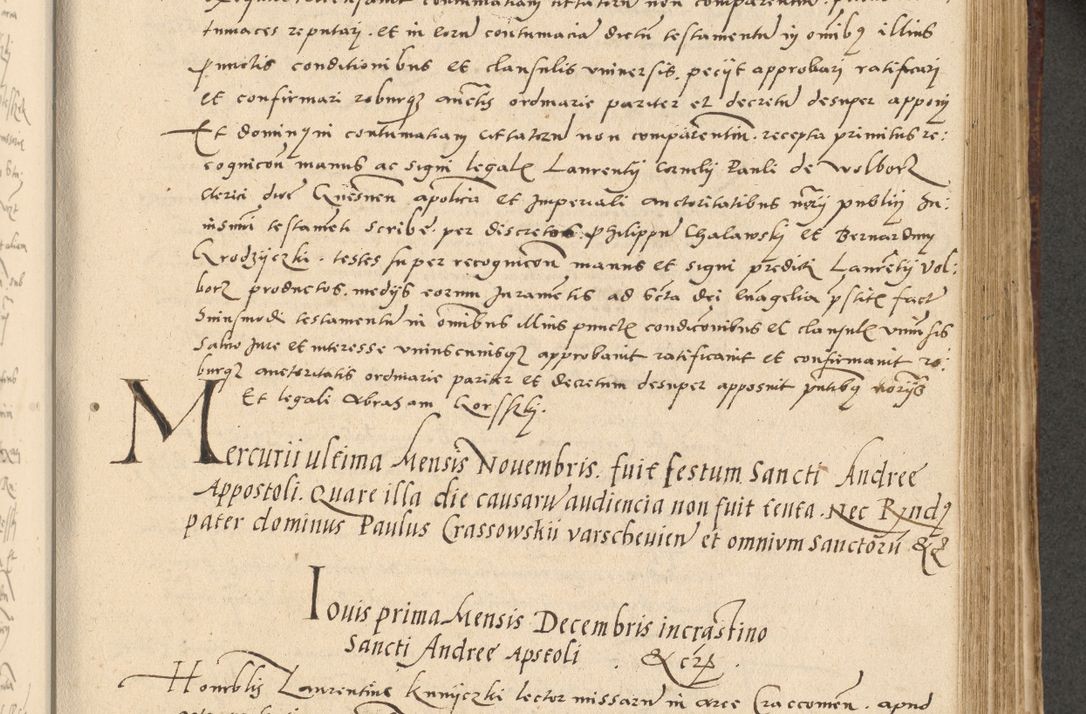 tumaces reputari. et in eorum contumacia dictũ testamentũ in oĩbus illius
punctis conditionibus et clausulis universis. petiit approbari ratificari
et confirmari roburq3 auctis ordinarie pariter et decretũ desuper apponi
Et dominus in contumatiam citatorũ non comparentiũ. recepta primitus re:
cognicoñ manus ac signi legalẽ Laurentii Cornelii Pauli de Wolborz
clerici dioc Gnesneñ apolica et Imperiali auctoritatibus norii publii hu:
iusmõi testameti scribe per discretos Philippũ Chalawski et Bernardinũ
Grodzyczki. testes super recognicoñ manus et signi prediti Laurẽtii Vol:
borz productos. mediis eorum Iuramẽtis ad scta dei Euãgelia pstitẽ fact
huiusmodi testamentũ in omibus illius punctẽ condicõnibus et clausulẽ uniũsis
salvo Iure et interesse uniuscuiusq3 approbavit ratificavit et confirmavit ro:
burq3 auctoritatis ordinarie pariter et decretum desuper apposuit pñtibus noriis
Et legali Abraham Gorssky.
Mercurii ultima Mensis Novembris. fuit festum Sancti Andree
Appostoli. Quare illa die causarũ audiencia non fuit tenta. Nec Rvndus
pater dominus Paulus Crassowskii varscheuieñ et omnivm Sanctorũ &c
Iouis prima Mensis Decembris in crastino
Sancti Andree Apstoli . &cr .
Honrblis Laurentius Knyczki lector missarũ in arce Craccoueñ. apud